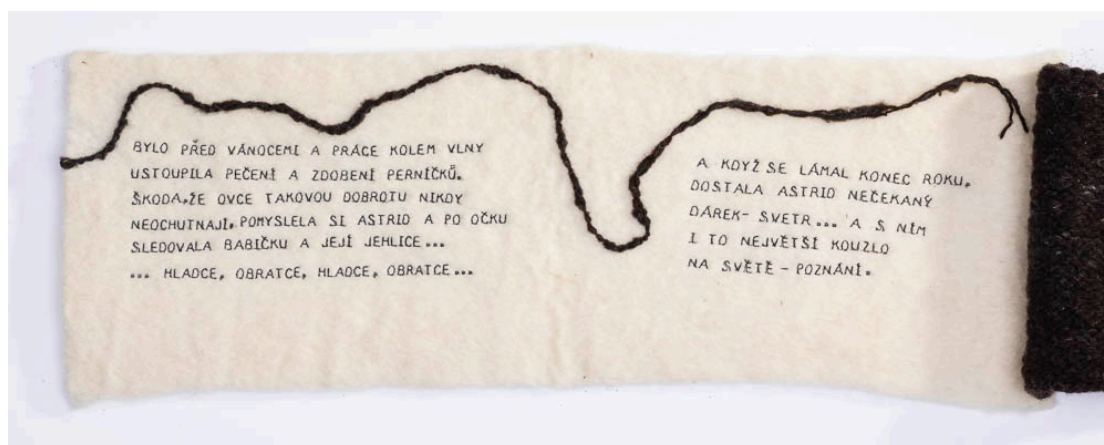 BYLO PŘED VÁNOCEMI A PRÁCE KOLEM VLNY
USTOUPILA PEČENÍ A ZDOBENÍ PERNÍČKŮ.
ŠKODA,ŽE OVCE TAKOVOU DOBROTU NIKDY
NEOCHUTNAJÍ, POMYSLELA SI ASTRID A PO OČKU
SLEDOVALA BABIČKU A JEJÍ JEHLICE...
... HLADCE, OBRATCE, HLADCE, OBRATCE...
A KDYŽ SE LÁMAL KONEC ROKU,
DOSTALA ASTRID NEČEKANÝ
DÁREK- SVETR... A S NÍM
I TO NEJVĚTŠÍ KOUZLO
NA SVĚTĚ - POZNÁNÍ.